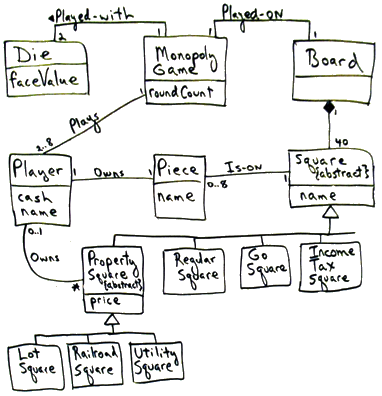 Played-with
Played-ON
2
1
1
1
Die
faceValue
Monopoly
Game
roundCount
Board
1
Plays
1
2..8
40
Player
cash
name
1
Owns
1
Piece
name
Is-on
0..8
1
Square
{abstract}
name
0..1
Owns
*
Property
Square
{abstract}
price
Regular
Square
Go
Square
Income
Tax
Square
Lot
Square
Railroad
Square
Utility
Square